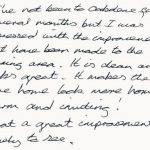 've not been to Oakdene for
several months but I was
pressed with the improvement
at have been made to the
ning area. It is clean and
oks great. It makes the
me home look more hom
rm and inviting!
at a great improvement
ely to see.